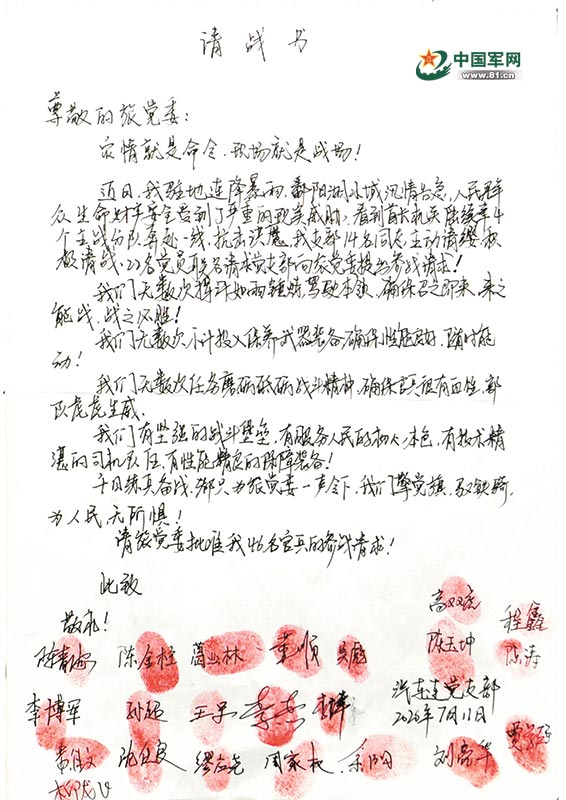 请战书
中国军网
www.81.cn
尊敬的旅党委：
灾情就是命令，现场就是战场！
近日，我驻地连降暴雨，鄱阳湖水域汛情告急，人民群
众生命财产安全受到了严重的现实威胁，看到首长机关陆续率4
个主战分队奔赴一线，抗击洪魔，我支部14名同志主动请缨，积
极请战，22名党员联名请求党支部向旅党委提出参战请求！
我们无数次挥汗如雨锤炼驾驶本领，确保召之即来，来之
能战，战之必胜！
我们无数次 投入保养武器装备，确保性能良好，随时能
动！
我们无数次任务磨砺砥砺战斗精神，确保官兵很有血性，部
队虎虎生威．
我们有坚强的战斗堡垒，有服务人民的初心本色，有技术精
湛的司机队伍，有性能精良的保障装备！
千日练兵备战，都只为旅党委一声令下，我们擎党旗，驭铁骑，
为人民，无所惧！
请旅党委批准我46名官兵的参战请求！
此致
敬礼！
高双 程鑫
陈全柱 葛丛林 董顺 吴彪 陈玉坤 陈涛
李博军 孙超 王早 李杰
汽车连党支部
2020年7月11日
缪应尧 周家权 余阳 刘亮华